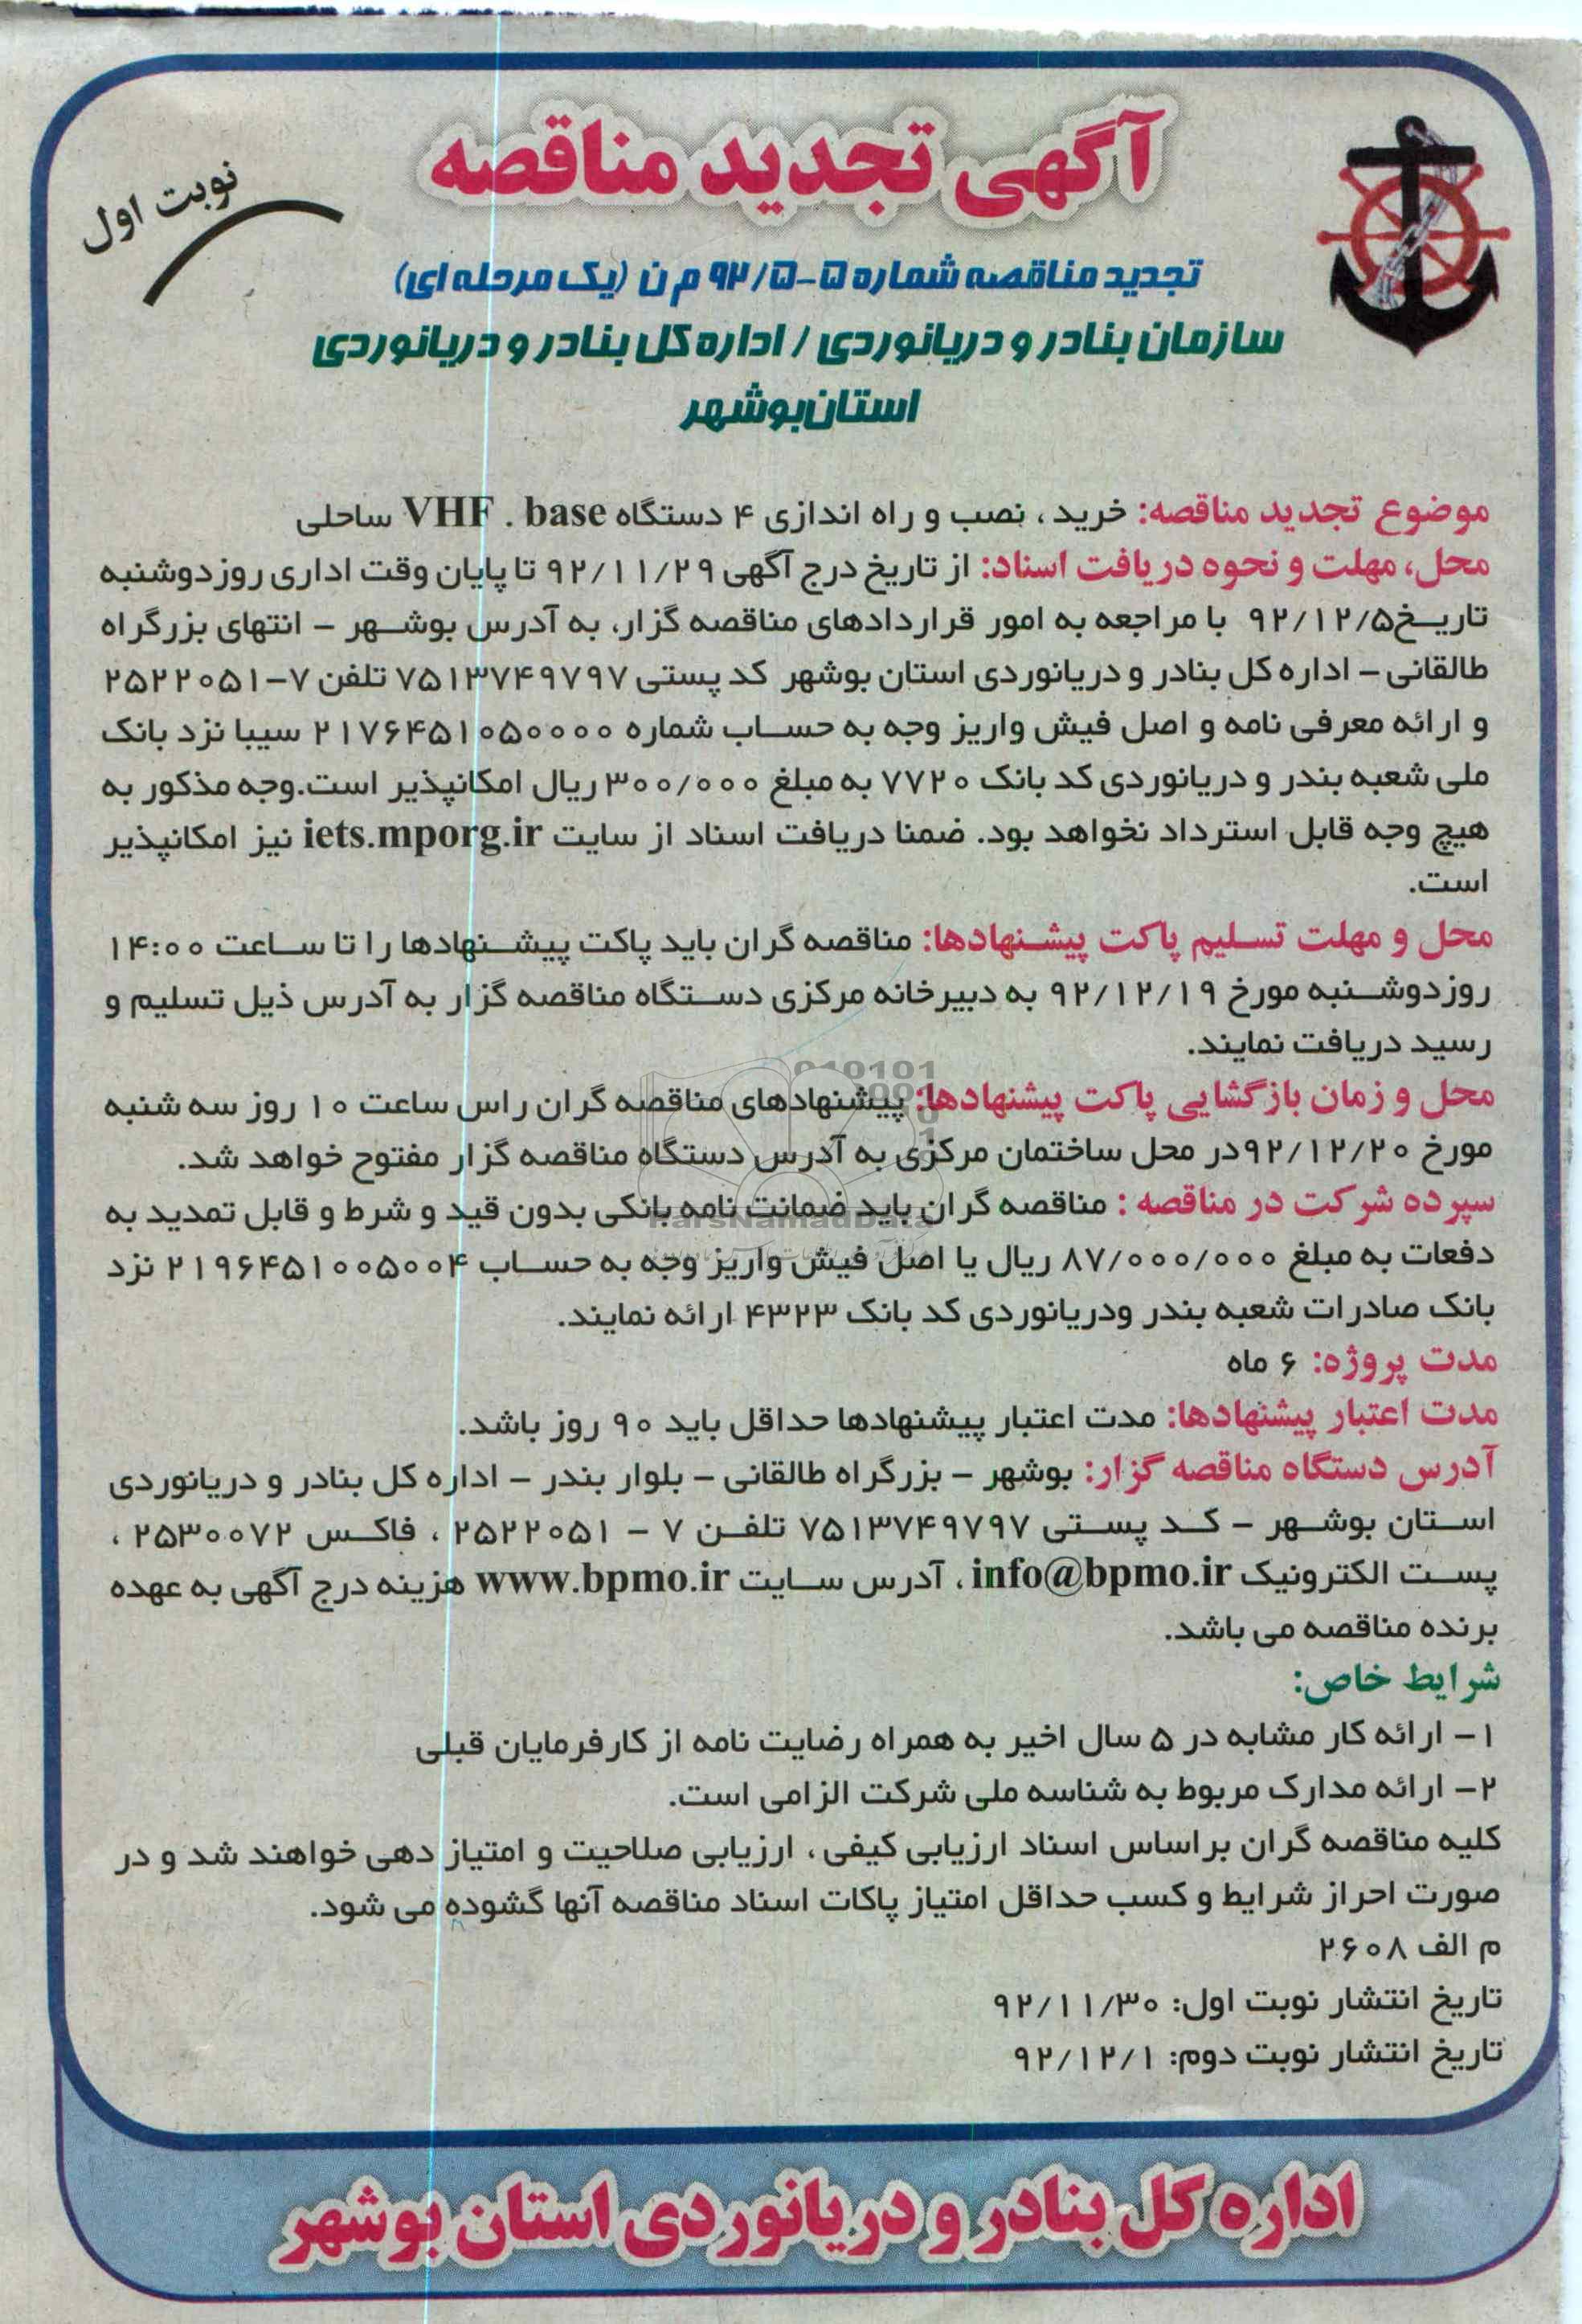 آگهی تجدید مناقصه
نوبت اول
تجدید مناقصه شماره ۵-۹۲/۵ م ن (یک مرحله ای)
سازمان بنادر و دریانوردی / اداره کل بنادر و دریانوردی
استان بوشهر
موضوع تجدید مناقصه: خرید ، نصب و راه اندازی ۴ دستگاه VHF . base ساحلی
محل، مهلت و نحوه دریافت اسناد: از تاریخ درج آگهی ۹۲/۱۱/۲۹ تا پایان وقت اداری روز دوشنبه
تاریخ ۹۲/۱۲/۵ با مراجعه به امور قراردادهای مناقصه گزار، به آدرس بوشهر – انتهای بزرگراه
طالقانی – اداره کل بنادر و دریانوردی استان بوشهر کد پستی ۷۵۱۳۷۴۹۷۹۷ تلفن ۷-۲۵۲۲۰۵۱
و ارائه معرفی نامه و اصل فیش واریز وجه به حساب شماره ۲۱۷۶۴۵۱۰۵۰۰۰۰ سیبا نزد بانک
ملی شعبه بندر و دریانوردی کد بانک ۷۷۲۰ به مبلغ ۳۰۰/۰۰۰ ریال امکانپذیر است.وجه مذکور به
هیچ وجه قابل استرداد نخواهد بود. ضمنا دریافت اسناد از سایت iets.mporg.ir نیز امکانپذیر
است.
محل و مهلت تسلیم پاکت پیشنهادها: مناقصه گران باید پاکت پیشنهادها را تا ساعت ۱۴:۰۰
روز دوشنبه مورخ ۹۲/۱۲/۱۹ به دبیرخانه مرکزی دستگاه مناقصه گزار به آدرس ذیل تسلیم و
رسید دریافت نمایند.
محل و زمان بازگشایی پاکت پیشنهادها: پیشنهادهای مناقصه گران راس ساعت ۱۰ روز سه شنبه
مورخ ۹۲/۱۲/۲۰در محل ساختمان مرکزی به آدرس دستگاه مناقصه گزار مفتوح خواهد شد.
سپرده شرکت در مناقصه : مناقصه گران باید ضمانت نامه بانکی بدون قید و شرط و قابل تمدید به
دفعات به مبلغ ۸۷/۰۰۰/۰۰۰ ریال یا اصل فیش واریز وجه به حساب ۲۱۹۶۴۵۱۰۰۵۰۰۴ نزد
بانک صادرات شعبه بندر ودریانوردی کد بانک ۴۳۲۳ ارائه نمایند.
مدت پروژه: ۶ ماه
مدت اعتبار پیشنهادها: مدت اعتبار پیشنهادها حداقل باید ۹۰ روز باشد.
آدرس دستگاه مناقصه گزار: بوشهر – بزرگراه طالقانی – بلوار بندر – اداره کل بنادر و دریانوردی
استان بوشهر – کد پستی ۷۵۱۳۷۴۹۷۹۷ تلفن ۷ – ۲۵۲۲۰۵۱ ، فاکس ۲۵۳۰۰۷۲ ،
پست الکترونیک info@bpmo.ir ، آدرس سایت www.bpmo.ir هزینه درج آگهی به عهده
برنده مناقصه می باشد.
شرایط خاص:
۱– ارائه کار مشابه در ۵ سال اخیر به همراه رضایت نامه از کارفرمایان قبلی
۲– ارائه مدارک مربوط به شناسه ملی شرکت الزامی است.
کلیه مناقصه گران بر اساس اسناد ارزیابی کیفی ، ارزیابی صلاحیت و امتیاز دهی خواهند شد و در
صورت احراز شرایط و کسب حداقل امتیاز پاکات اسناد مناقصه آنها گشوده می شود.
م الف ۲۶۰۸
تاریخ انتشار نوبت اول: ۹۲/۱۱/۳۰
تاریخ انتشار نوبت دوم: ۹۲/۱۲/۱
اداره کل بنادر و دریانوردی استان بوشهر